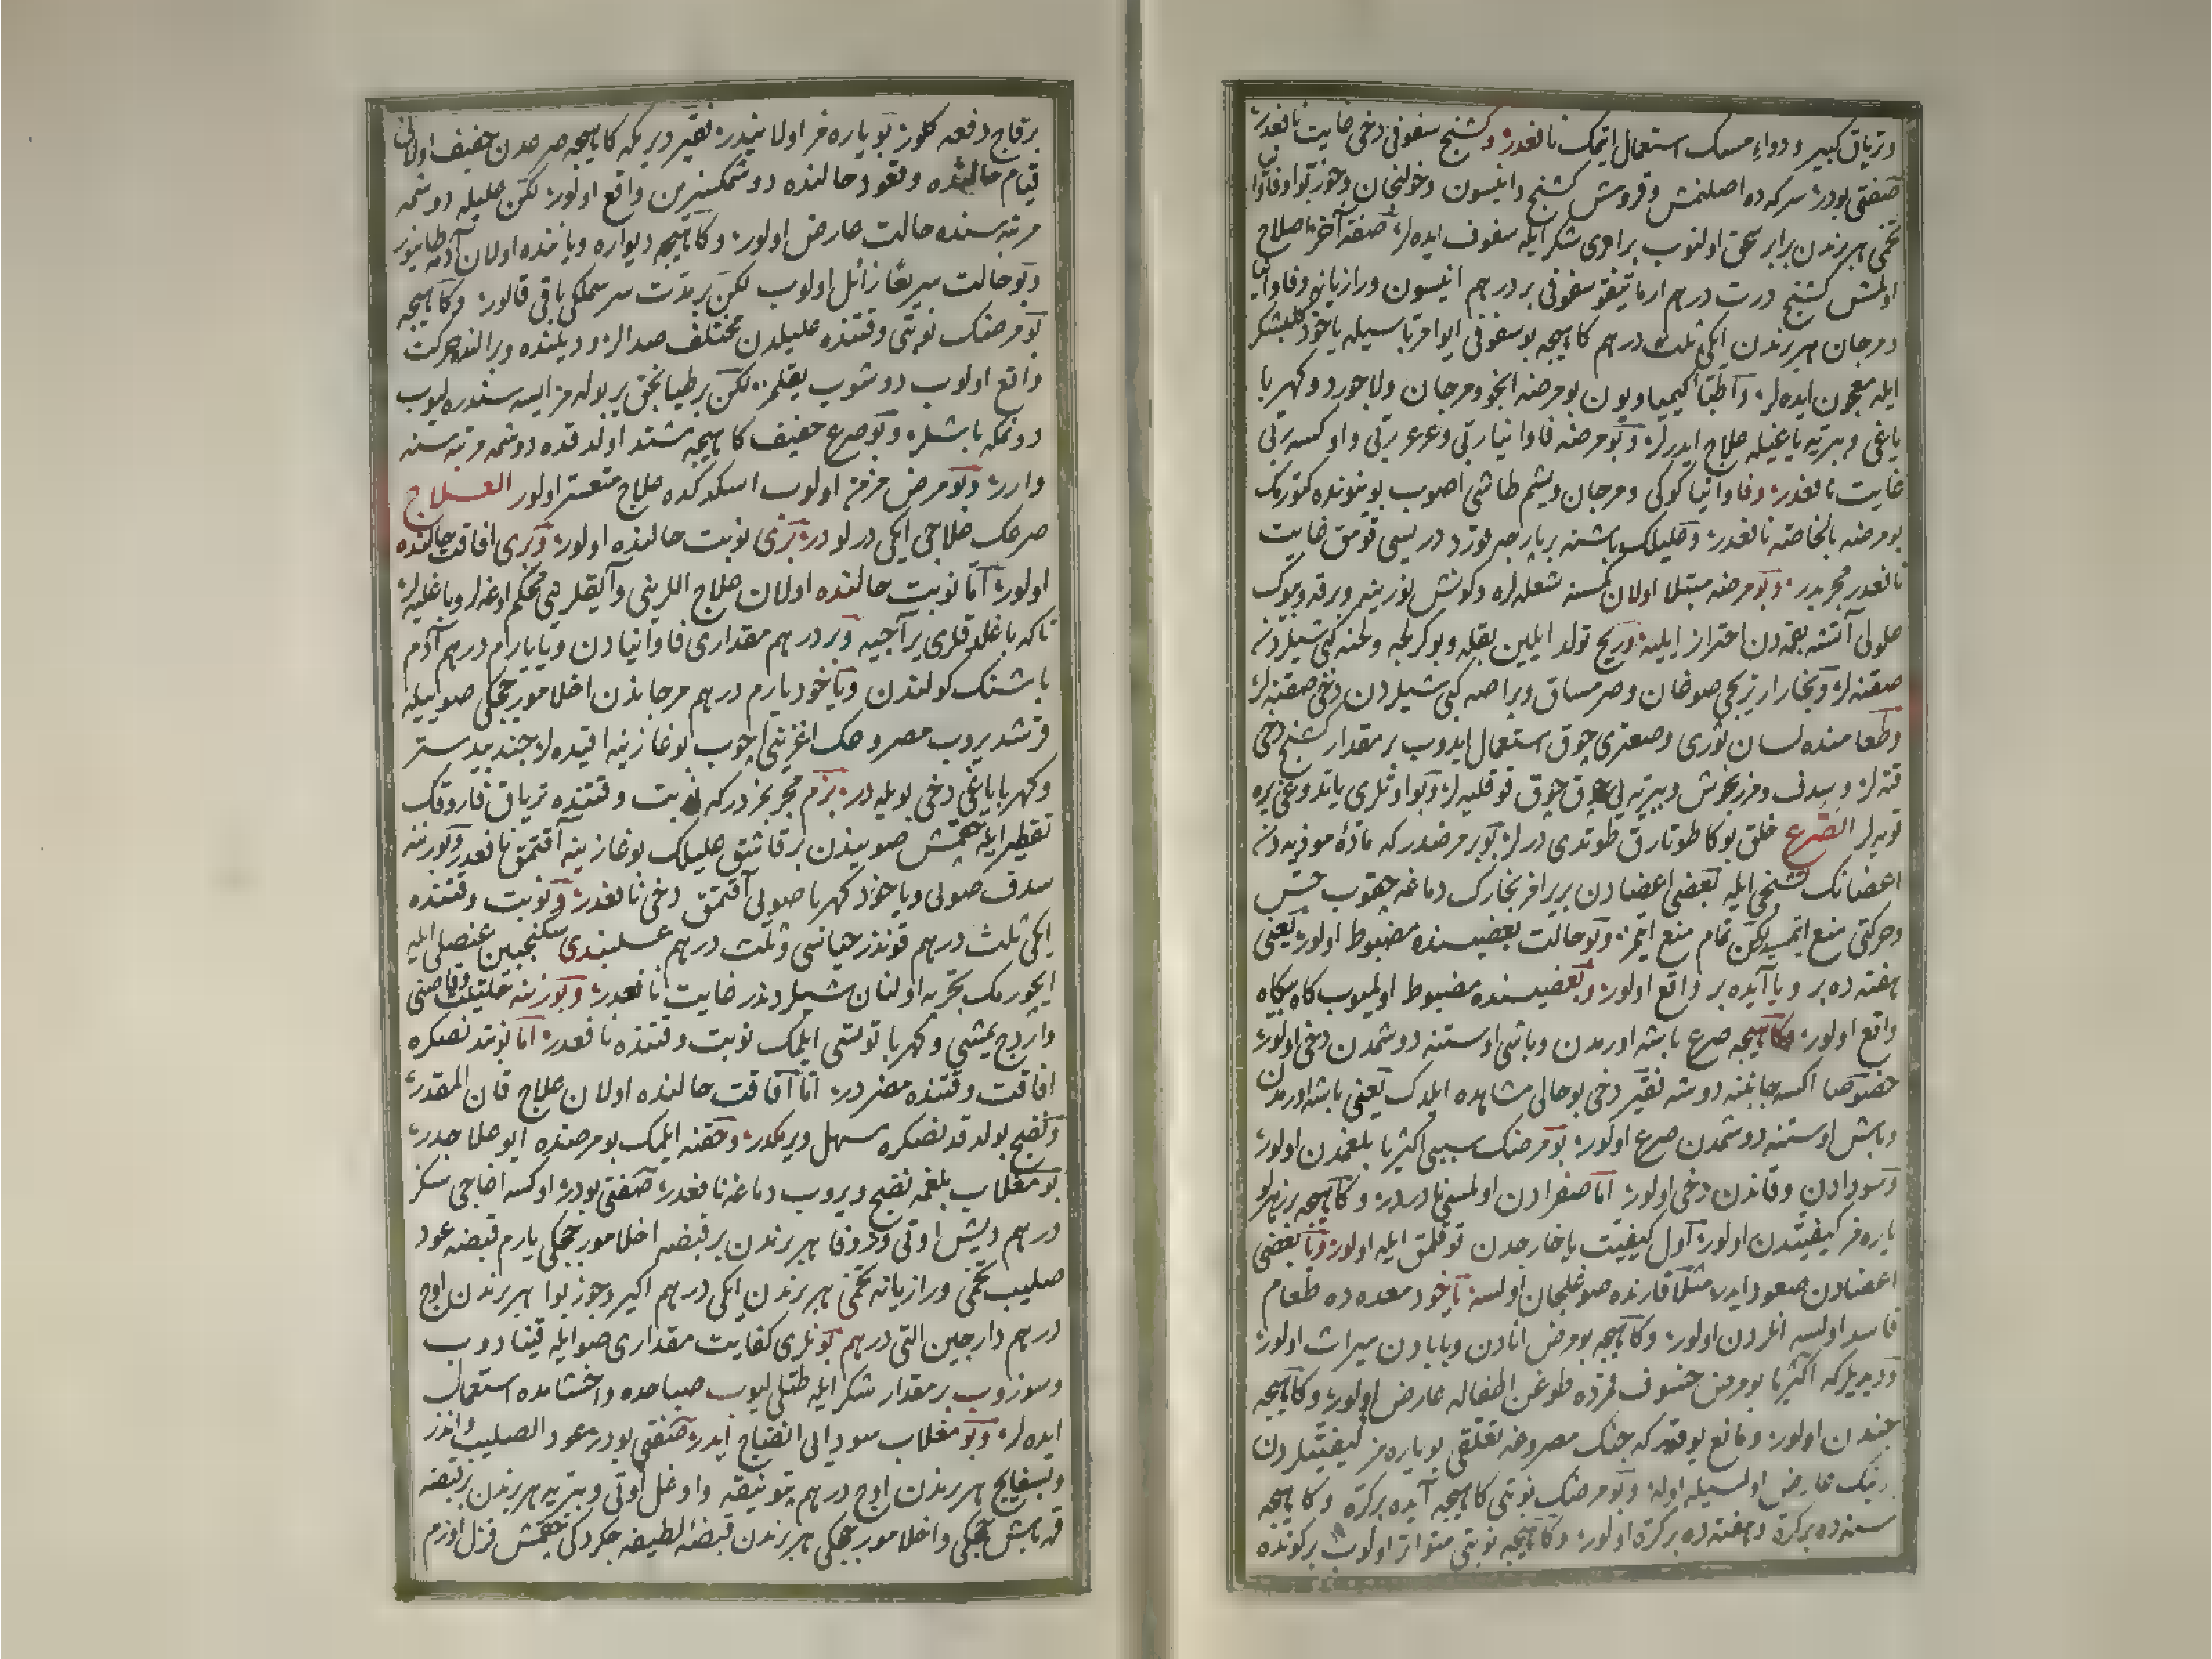 وترياق كبير ودواء مسك استعمال ايتمك نافعدر وكشنج سفوفى دخى غايت نافعدر
صنعتى بودر سركه ده اصلنمش وقورمش كشنج وانيسون وخولنجان وجوزبوا وفاوانيا
تخمى هر برندن برابر سحق اولنوب برابرى شكر ايله سفوف ايده لر صنعة آخر اصلاح
اولمش كشنج درت درهم ارماتيقو سفوفى بر درهم انيسون ورازيانه وفاوانيا
ومرجان هر برندن ايكى ثلث درهم كاهيجه بو سفوفى ايوا مرباسيله ياخود كلبشكر
ايله معجون ايده لر واطبّا كيمياويون بو مرضه انجو ومرجان ولاجورد وكهربا
ياغى وبتريه ياغيله علاج ايدرلر وبو مرضه فاوانيا ربّى وعرعر ربّى واوكسه ربّى
غايت نافعدر وفاوانيا كوكى ومرجان ويشم طاشى اصوب بويننده كتورمك
بو مرضه بالخاصّه نافعدر وعليلك باشنه بر پاره قورد دريسى قومق غايت
نافعدر مجربدر وبو مرضه مبتلا اولان كمسنه شعله لره وكونش نورينه وبرقه ويوكسك
حولى آتشه بقمدن احتراز ايليه وريح تولد ايلين بقله وبوكرلجه ولحنه كبى شيلردن
صقنه لر وبخارارتريجى صوغان وصرمساق وپراصه كبى شيلردن دخى صقنه لر
وطعامنده لسان ثورى وصعترى چوق استعمال ايدوب بر مقدار كشنج دخى
قته لر وسدف ومرزنجوش وبيريه لى چوق چوق قوقليه لر وبو اوتلرى ياتدوغى يره
قويه لر الصّرع خلق بوكا طوتارق طوتدى درلر بو بر مرضدر كه مادهٔ موذيه دن
اعضانك تشنجى ايله بعضى اعضادن بر يرامز بخارك دماغه چقوب حسّ
وحركتى منع ايتمسيدر لكن تمام منع ايتمز وبو حالت بعضيسنده مضبوط اولور يعنى
هفته ده بر ويا آيده بر واقع اولور وبعضيسنده مضبوط اولميوب كاه بيكاه
واقع اولور وكاهيجه صرع باشه اورمدن وباشى اوستنه دوشمدن دخى اولور
خصوصا اكسه جانبنه دوشه فقير دخى بو حالى مشاهده ايلدك يعنى باشه اورمدن
وباش اوستنه دوشمدن صرع اولور بو مرضك سببى اكثريا بلغمدن اولور
وسودادن وقاندن دخى اولور امّا صفرادن اولمسى نادردر وكاهيجه بر زهرلو
يارەمز كيفيتدن اولور اول كيفيت يا خارجدن قوقلمق ايله اولور ويا بعضى
اعضادن صعود ايدر مثلا قارنده صوغلجان اولسه ياخود معده ده طعام
فاسد اولسه انلردن اولور وكاهيجه بو مرض انادن وبابادن ميراث اولور
وديديلر كه اكثريا بو مرض خسوف قمرده طوغن اطفاله عارض اولور وكاهيجه
جندن اولور ومانع يوقدر كه جنك مصروعه تعلقى بو يارەمز كيفيتلردن
برينك عارض اولمسيله اوله وبو مرضك نوبتى كاهيجه آيده بر كره وكاهيجه
سنه ده بر كره وهفته ده بر كره اولور وكاهيجه نوبتى متواتر اولوب بر كونده
برقاج دفعه كلور بو يارەمز اولانيدر فقير ديرمكه كاهيجه صرعدن خفيف اولانى
قيام حالنده وقعود حالنده دوشمكسزين واقع اولور لكن عليله دوشمه
مرتبه سنده حالت عارض اولور وكاهيجه ديواره ويا ننده اولان آدمه طاينور
وبو حالت سريعا زائل اولوب لكن بر مدت سرسملكى باقى قالور وكاهيجه
بو مرضك نوبتى وقتنده عليلدن مختلف صدالر وديلنده وير النده حركت
واقع اولوب دوشوب يقلمز لكن بر طيانجق ير بولەمز ايسه سندره ليوب
دونمكه باشلر وبو صرع خفيف كاهيجه مشتد اولدقده دوشمه مرتبه سنه
وارر وبو مرض مزمن اولوب اسكدكده علاج متعسر اولور العلاج
صرعك علاجى ايكى درلودر برى نوبت حالنده اولور وبرى افاقت حالنده
اولور امّا نوبت حالنده اولان علاج اللرينى واياقلرينى محكم اوغه لر وباغليه لر
تاكه باغلدقلرى ير آجيه وبر درهم مقدارى فاوانيادن ويا يارم درهم آدم
باشنك كولندن وياخود يارم درهم مرجاندن اخلامور چچكى صوييله
قرشديروب مصروعك اغزينى اچوب بوغازينه اقيده لر جند بيدستر
وكهربا ياغى دخى بويله در بزم مجربمزدر كه نوبت وقتنده ترياق فاروقك
تقطير ايله چقمش صوييندن بر قاشق عليلك بوغازينه آقتمق نافعدر وبورننه
سدف صولى وياخود كهربا صولى آقتمق دخى نافعدر ونوبت وقتنده
ايكى ثلث درهم قوندز خياسى وثلث درهم عسلبندى سكنجبين عنصلى ايله
ايچورمك تجربه اولنان شيلردندر غايت نافعدر وبورننه حلتيت وقاصنى
وارديج يمشى وكهربا توتسى ايلمك نوبت وقتنده نافعدر امّا نوبتدنصكره
افاقت وقتنده مضردر امّا افاقت حالنده اولان علاج قان المقدر
ونضج بولدقدنصكره مسهل ويرمكدر وحقنه ايلمك بو مرضده ايو علاجدر
بو مغلاب بلغمه نضج ويروب دماغه نافعدر صنعتى بودر اوكسه اغاجى سكز
درهم ديش اوتى وزوفا هر برندن بر قبضه اخلامور چچكى يارم قبضه عود
صليب تخمى ورازيانه تخمى هر برندن ايكى درهم اكير وجوزبوا هر برندن اوچ
درهم دارچين التى درهم بونلرى كفايت مقدارى صو ايله قينادوب
وسوزوب بر مقدار شكر ايله طتليليوب صباحده واخشامده استعمال
ايده لر وبو مغلاب سودايى انضاج ايدر صنعتى بودر عود الصليب واندز
وبسفايج هر برندن اوچ درهم بتونيقه واوغل اوتى وبتريه هر برندن بر قبضه
قره باش چچكى واخلامور چچكى هر برندن قبضهٔ لطيفه چكردكى چقمش قزل اوزم